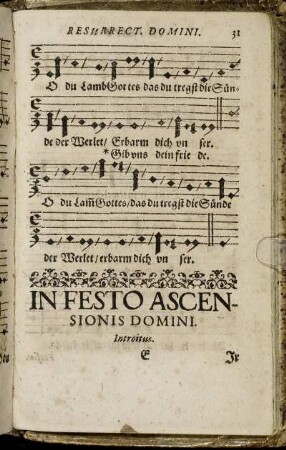 RESURRECT. DOMINI. 31
O du LambGottes das du tregst die Sün-
de der Werlet/ Erbarm dich vn ser.
* Gib vns dein frie de.
O du Lam̃Gottes/das du tregst die Sünde
der Werlet/erbarm dich vn ser.
IN FESTO ASCEN-
SIONIS DOMINI.
Introitus.
E Ir